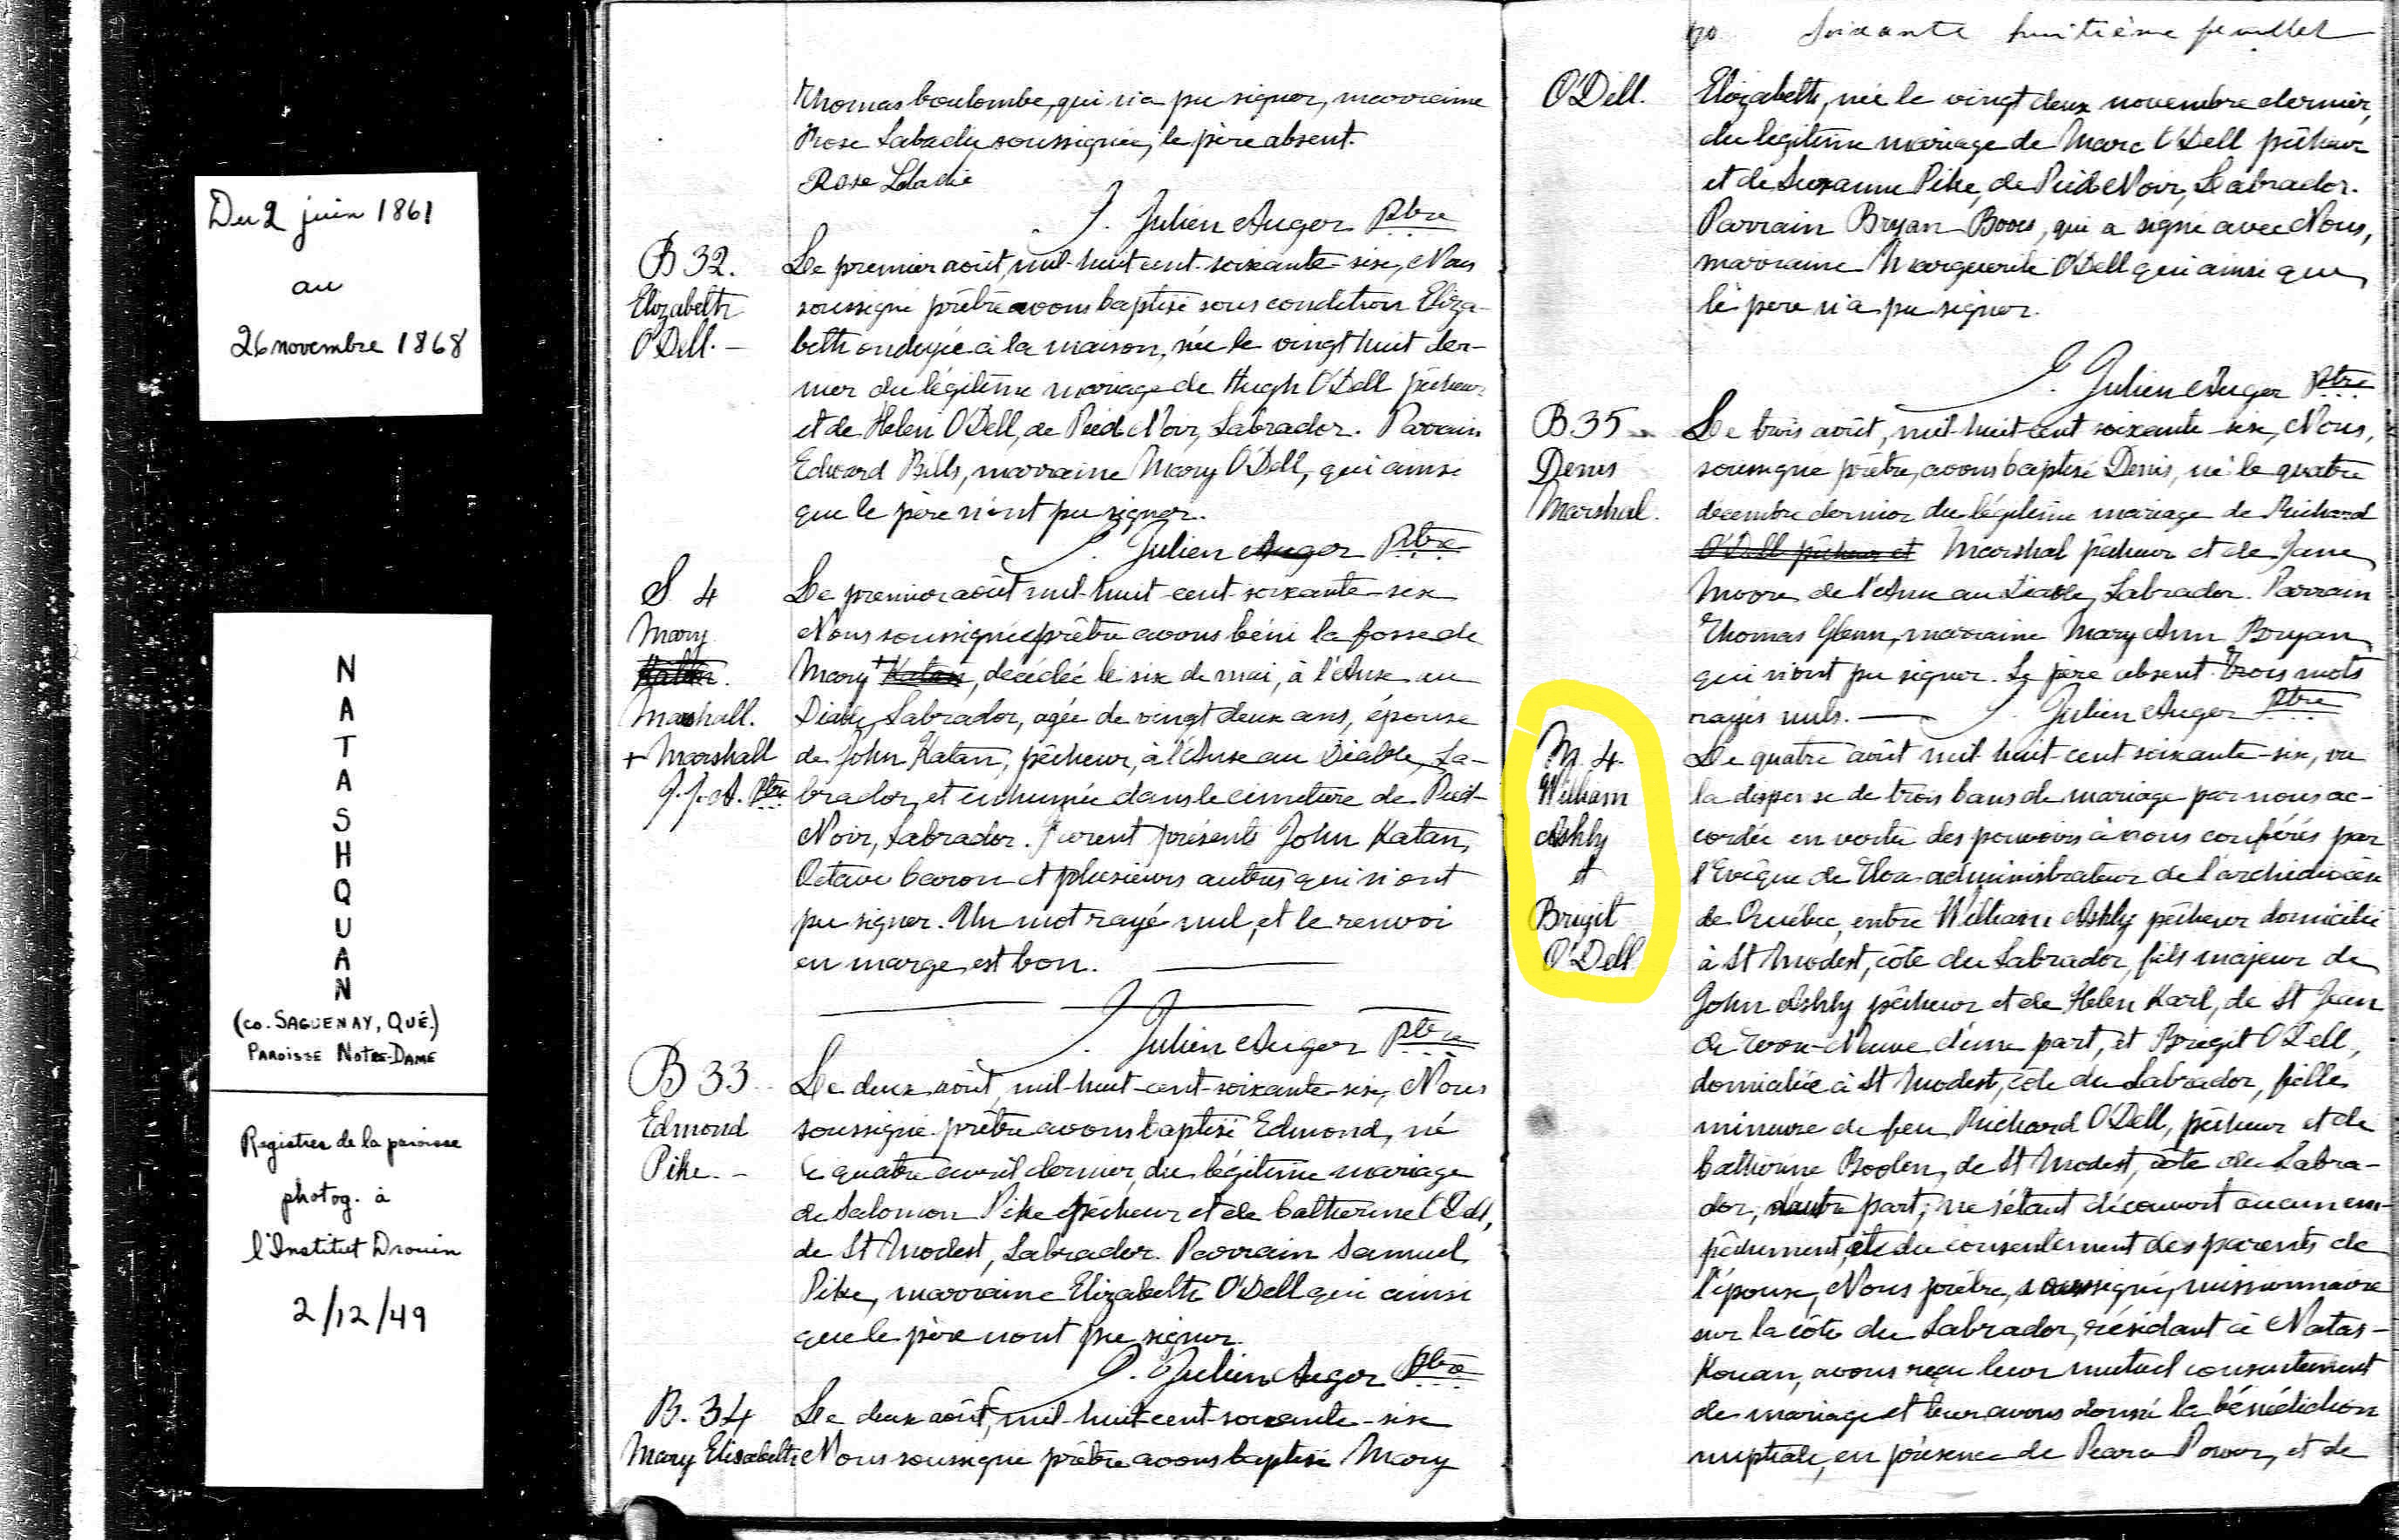 Du 2 juin 1861
au
26 novembre 1868
N
A
T
A
S
H
Q
U
A
N
(CO. SAGUENAY, QUÉ.)
PAROISSE NOTRE-DAME
Registres de la paroisse
photog. à
l'Institut Drouin
2/12/49
Thomas Coulombe, qui n'a pu signer, marraine
Rose Labadie soussignée, le père absent.
Rose Labadie
J. Julien Auger Ptre
B 32.
Elizabeth
O'Dell. –
Le premier août, mil-huit-cent-soixante-six, Nous
soussigné prêtre avons baptisé sous condition Eliza-
beth ondoyée à la maison, née le vingt huit der-
nier du légitime mariage de Hugh O'Dell pêcheur
et de Helen O'Dell, de Pied Noir, Labrador. Parrain
Edward Bills, marraine Mary O'Dell, qui ainsi
que le père n'ont pu signer.
J. Julien Auger Ptre
S 4
Mary
Katan.
Marshall.
+ Marshall
J. J. A. Ptre
Le premier août mil-huit-cent-soixante-six
Nous soussigné prêtre avons béni la fosse de
Mary + Katan, décédée le six de mai, à l'Anse au
Diable, Labrador, agée de vingt deux ans, épouse
de John Katan, pêcheur, à l'Anse au Diable, La-
brador, et inhumée dans le cimetière de Pied-
Noir, Labrador. Furent présents John Katan,
Octave Caron et plusieurs autres qui n'ont
pu signer. Un mot rayé nul, et le renvoi
en marge est bon.
J. Julien Auger Ptre
B 33
Edmond
Pike. –
Le deux août, mil-huit-cent-soixante-six, Nous
soussigné prêtre avons baptisé Edmond, né
le quatre avril dernier, du légitime mariage
de Salomon Pike pêcheur et de Catherine O'Dell,
de St Modest, Labrador. Parrain Samuel
Pike, marraine Elizabeth O'Dell qui ainsi
que le père n'ont pu signer.
J. Julien Auger Ptre
B. 34
Mary Elisabeth
Le deux août, mil-huit-cent-soixante-six
Nous soussigné prêtre avons baptisé Mary
soixante huitième feuillet
O'Dell.
Elizabeth, née le vingt deux novembre dernier,
du légitime mariage de Marc O'Dell pêcheur
et de Suzanne Pike, de Pied Noir, Labrador.
Parrain Bryan, qui a signé avec Nous,
marraine Marguerite O'Dell qui ainsi que
le père n'a pu signer.
J. Julien Auger Ptre
B 35
Denis
Marshal.
Le trois août, mil-huit-cent soixante-six, Nous,
soussigné prêtre, avons baptisé Denis, né le quatre
décembre dernier du légitime mariage de Richard
O'Dell pêcheur et Marshal pêcheur et de Jane
Moore de l'Anse au Diable, Labrador. Parrain
Thomas Glenn, marraine Mary Ann Bryan
qui n'ont pu signer. Le père absent. Trois mots
rayés nuls. — J. Julien Auger Ptre
M. 4.
William
Ashly
et
Brigit
O'Dell
Le quatre août mil huit-cent soixante-six, vu
la dispense de trois bans de mariage par nous ac-
cordée en vertu des pouvoirs à nous conférés par
l'Evêque de Tloa administrateur de l'archidiocèse
de Québec, entre William Ashly pêcheur domicilié
à St Modest, côte du Labrador, fils majeur de
John Ashly pêcheur et de Helen Karl, de St Jean
de Terre-Neuve d'une part, et Brigit O'Dell,
domiciliée à St Modest, côte du Labrador, fille
mineure de feu Richard O'Dell, pêcheur et de
Catherine Boolen, de St Modest, côte du Labra-
dor, d'autre part; ne s'étant découvert aucun em-
pêchement, et du consentement des parents de
l'épouse, Nous prêtre, soussigné, missionnaire
sur la côte du Labrador, résidant à Natas-
kouan, avons reçu leur mutuel consentement
de mariage et leur avons donné la bénédiction
nuptiale, en présence de Power, et de